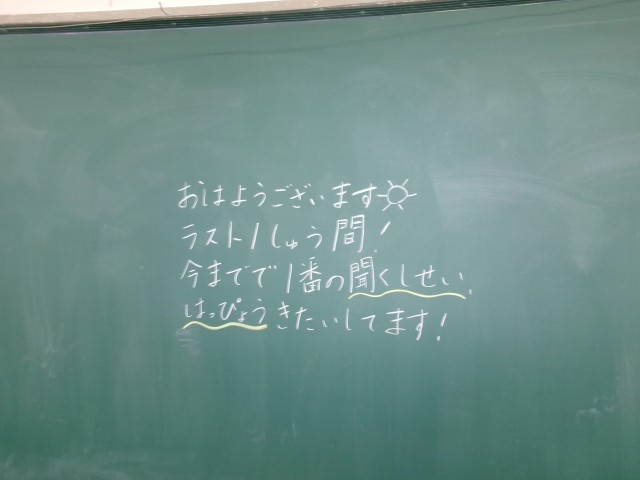 おはようございます☀
ラスト1しゅう間!
今までで1番の聞くしせい、
はっぴょうきたいしてます!